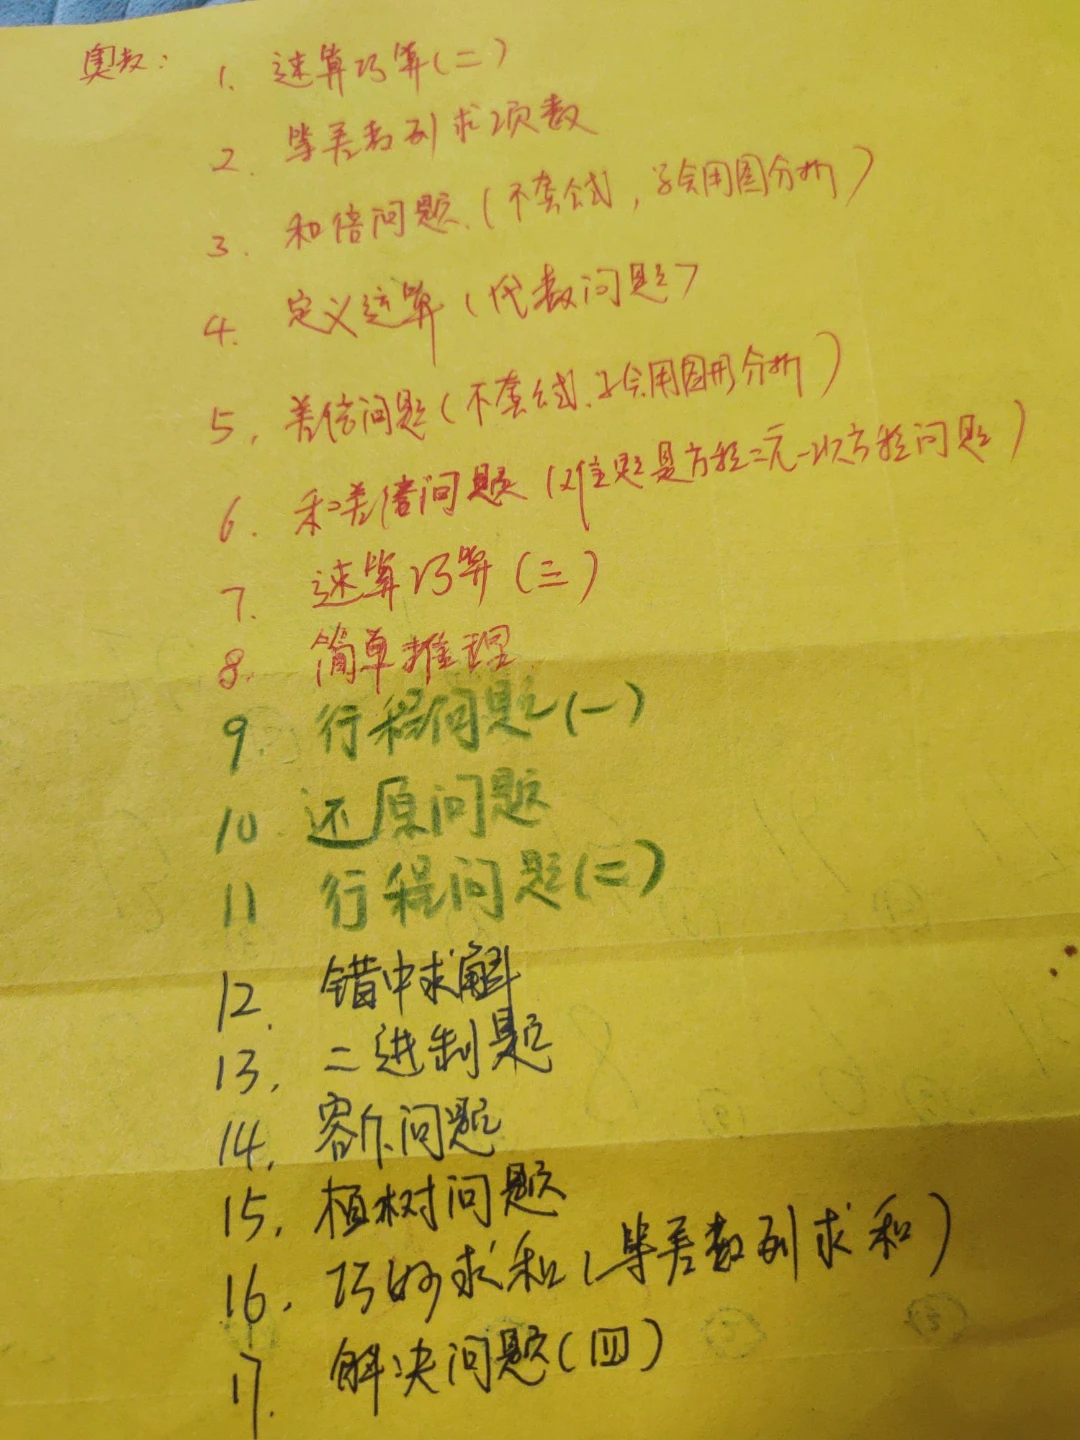 奥数: 1. 速算巧算(二)
2. 等差数列求项数
3. 和倍问题.(不套公式,学会用图分析)
4. 定义运算(代数问题)
5. 差倍问题(不套公式.学会用图形分析)
6. 和差倍问题(难题是方程二元一次方程问题)
7. 速算巧算(三)
8. 简单推理
9. 行程问题(一)
10 还原问题
11 行程问题(二)
12. 错中求解
13. 二进制题
14. 容斥问题
15. 植树问题
16. 巧妙求和(等差数列求和)
17. 解决问题(四)